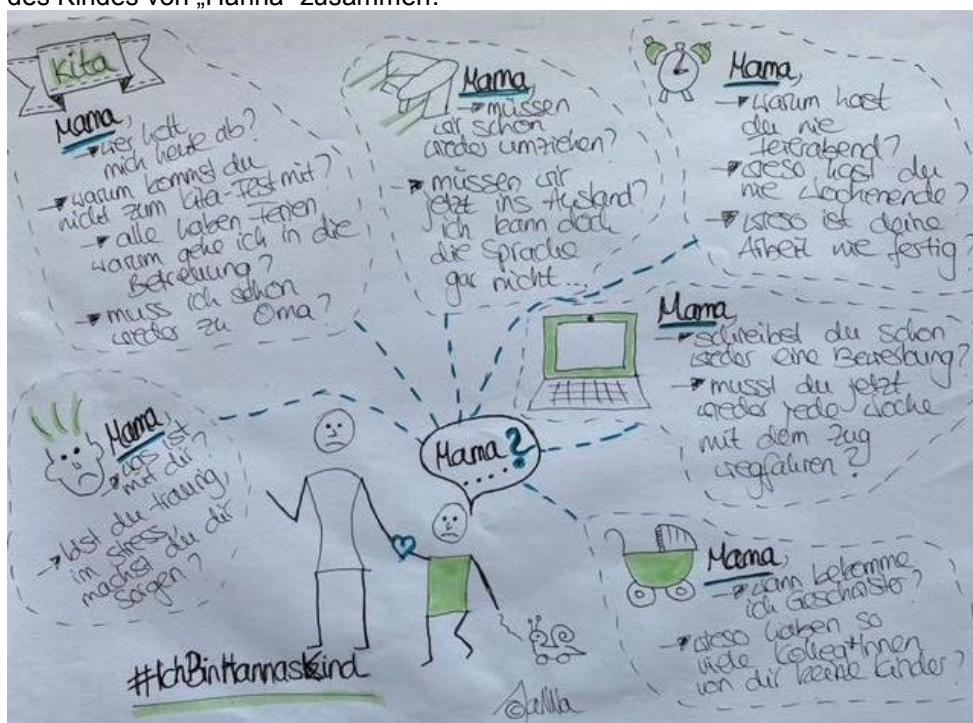 des Kindes von „Hanna“ zusammen:
Kita
Mama,
→ wer holt
mich heute ab?
→ warum kommst du
nicht zum Kita-Fest mit?
→ alle haben Ferien
warum gehe ich in die
Betreuung?
→ muss ich schon
wieder zu Oma?
Mama,
→ müssen
wir schon
wieder umziehen?
→ müssen wir
jetzt ins Ausland?
ich kann doch
die Sprache
gar nicht...
Mama,
→ warum hast
du nie
Feierabend?
→ wieso hast du
nie Wochenende?
→ wieso ist deine
Arbeit nie fertig?
Mama,
→ schreibst du schon
wieder eine Bewerbung?
→ musst du jetzt
wieder jede Woche
mit dem Zug
wegfahren?
Mama,
→ was ist
mit dir?
→ bist du traurig,
im Stress,
machst du dir
Sorgen?
Mama?
....
Mama,
→ wann bekomme
ich Geschwister?
→ wieso haben so
viele Kolleg*Innen
von dir keine Kinder?
#IchBinHannasKind